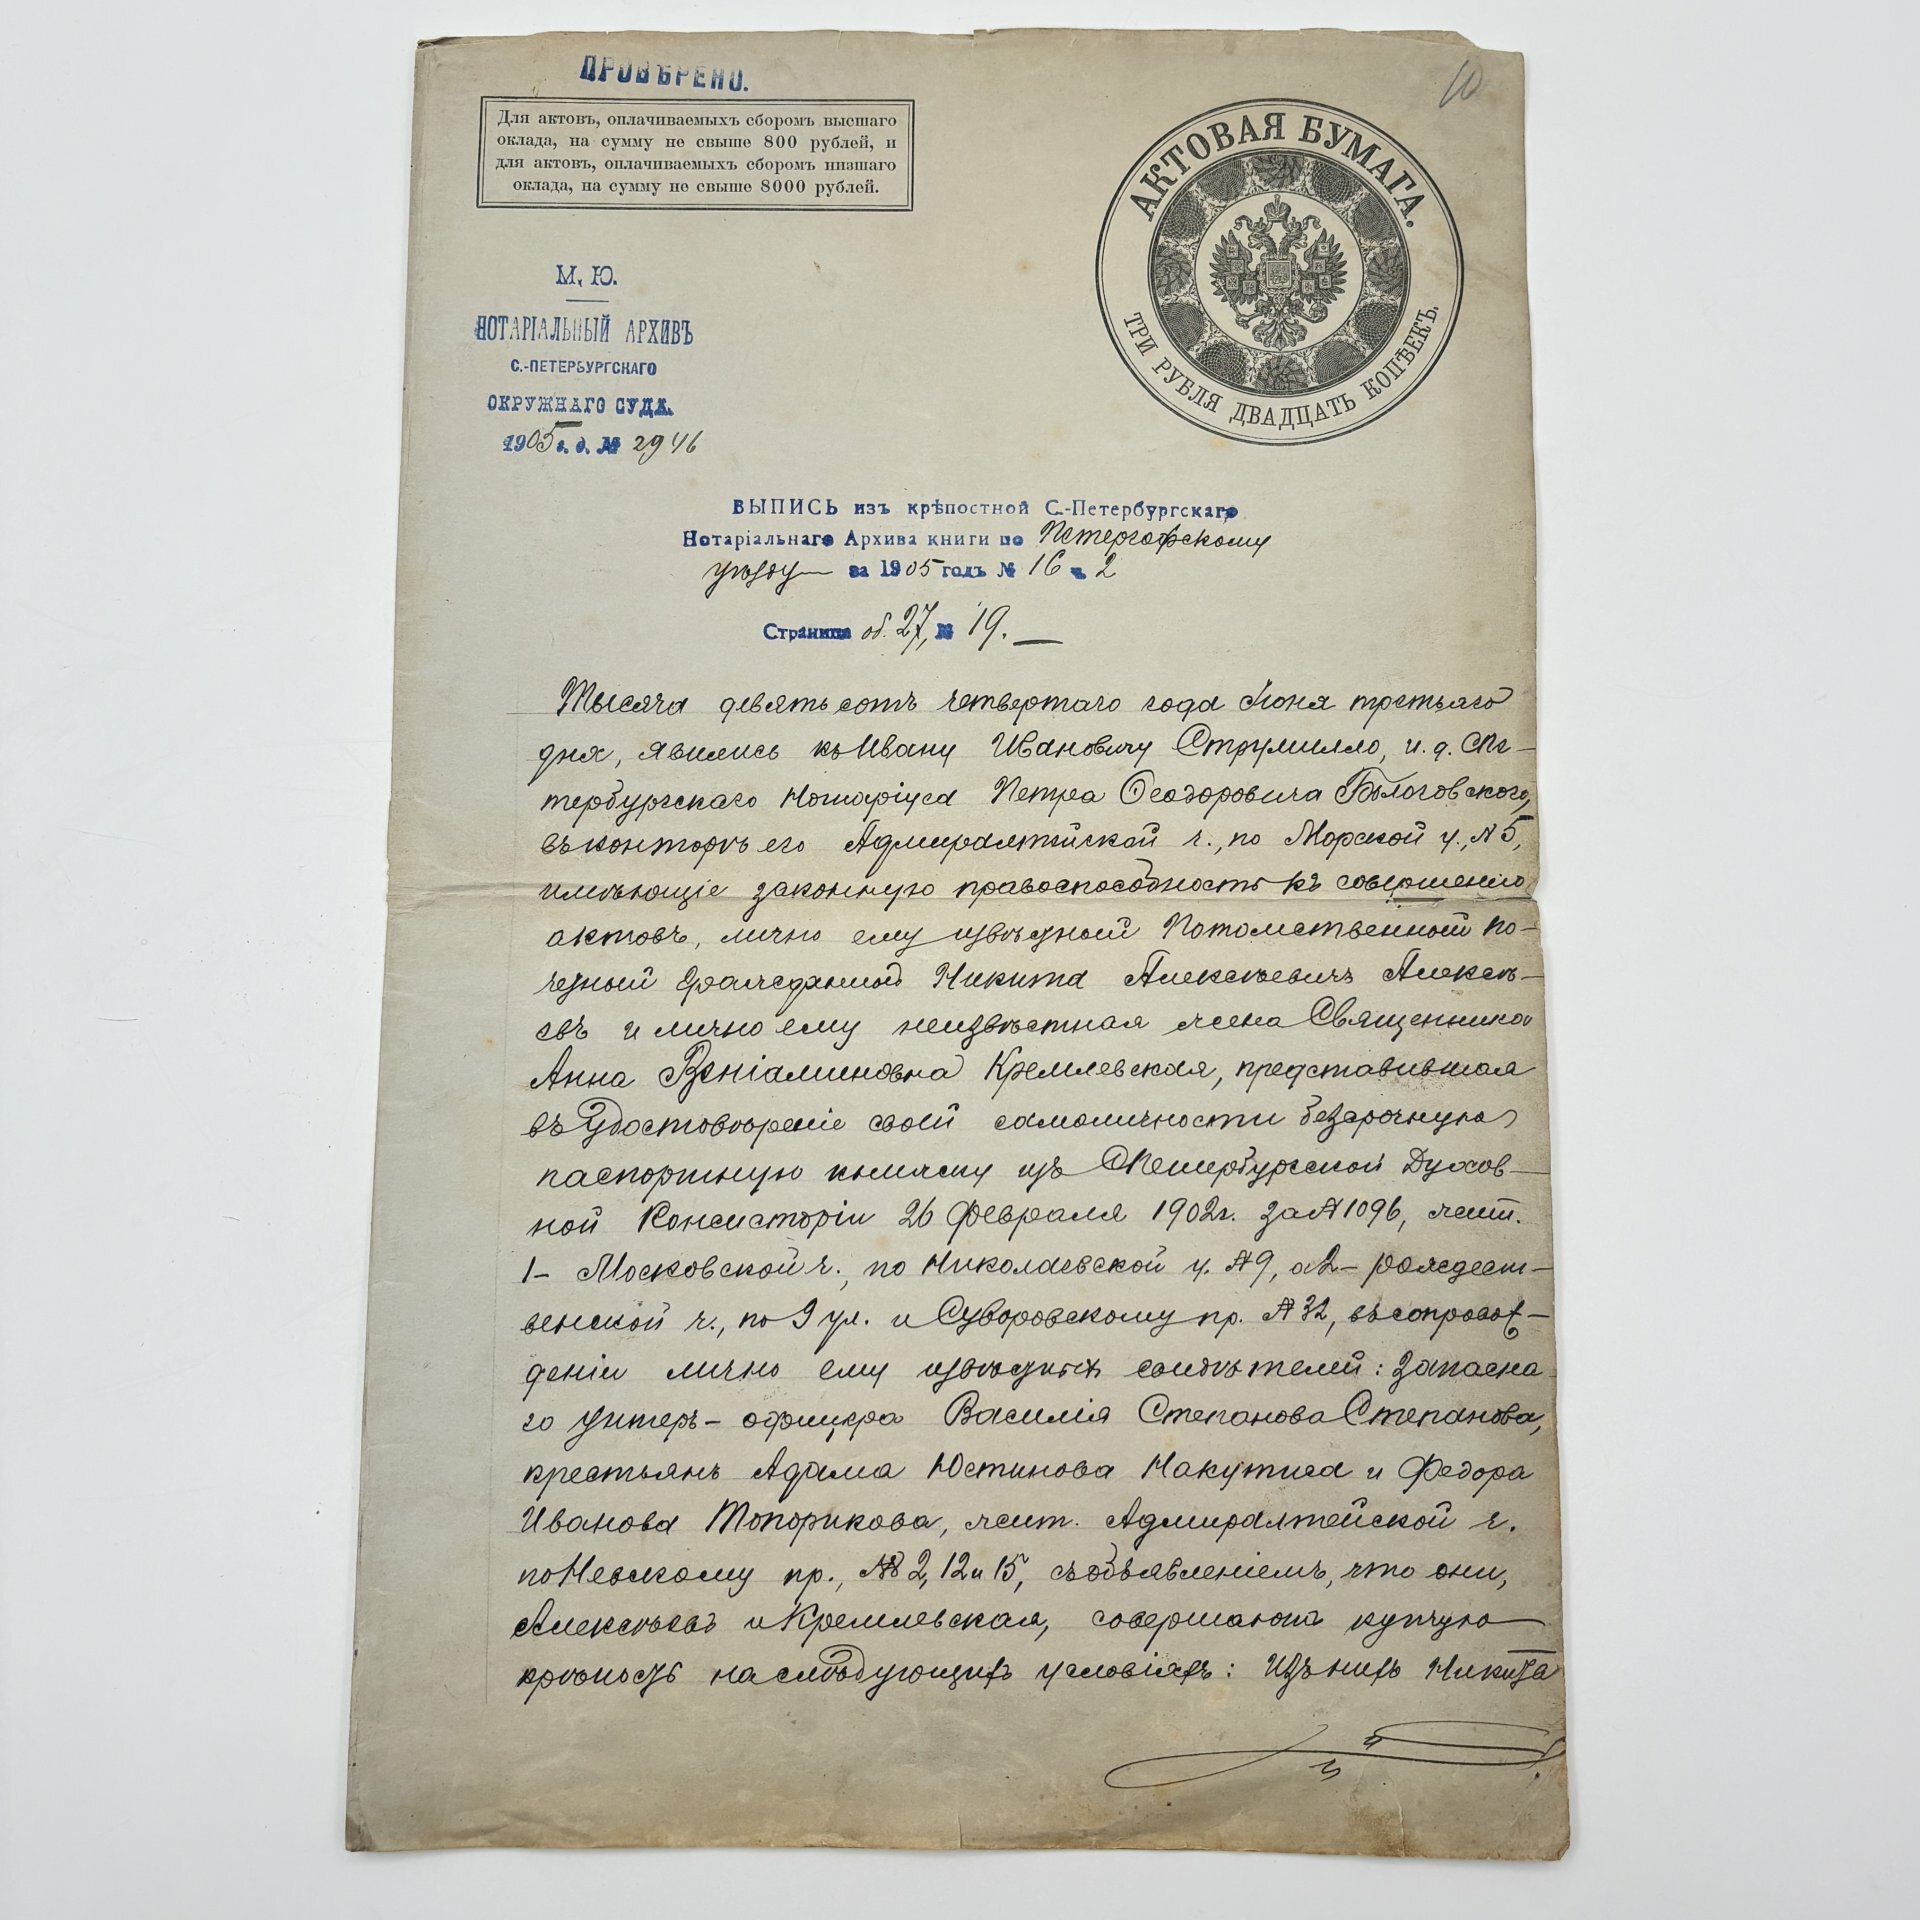 ПРОВѢРЕНО.
10
Для актовъ, оплачиваемыхъ сборомъ высшаго
оклада, на сумму не свыше 800 рублей, и
для актовъ, оплачиваемыхъ сборомъ низшаго
оклада, на сумму не свыше 8000 рублей.
АКТОВАЯ БУМАГА.
ТРИ РУБЛЯ ДВАДЦАТЬ КОПѢЕКЪ.
М. Ю.
НОТАРІАЛЬНЫЙ АРХИВЪ
С.-ПЕТЕРБУРГСКАГО
ОКРУЖНАГО СУДА.
1905 г. д. № 2946
ВЫПИСЬ изъ крѣпостной С.-Петербургскаго
Нотаріальнаго Архива книги по Петергофскому
уѣзду за 1905 годъ № 16 ч. 2
Страница об. 27, № 19.
Тысяча девятьсотъ четвертаго года Іюня третьяго
дня, явились къ Ивану Ивановичу Струмилло, и. д. СПе-
тербургскаго Нотаріуса Петра Ѳеодоровича
въ конторѣ его Адмиралтейской ч., по Морской у., № 5,
имѣющіе законную правоспособность къ совершенію
актовъ, лично ему извѣстный Потомственный По-
четный Гражданинъ Никита Алексѣевичъ Алексѣ-
евъ и лично ему неизвѣстная жена Священника
Анна Веніаминовна Кремлевская, представившая
въ удостовѣреніе своей самоличности безсрочную
паспортную книжку изъ СПетербургской Духов-
ной Консисторіи 26 Февраля 1902 г. за № 1096, жит.
1- Московской ч., по Николаевской у. № 9, а 2- Рождест-
венской ч., по 9 ул. и Суворовскому пр. № 32, въ сопровож-
деніи лично ему извѣстныхъ свидѣтелей: запасна-
го унтеръ-офицера Василія Степанова Степанова,
крестьянъ Адама Юстинова Накутиса и Федора
Иванова Топорикова, жит. Адмиралтейской ч.
по Невскому пр., №№ 2, 12 и 15, съ объявленіемъ, что они,
Алексѣевъ и Кремлевская, совершаютъ купчую
крѣпость на слѣдующихъ условіяхъ: изъ нихъ Никита